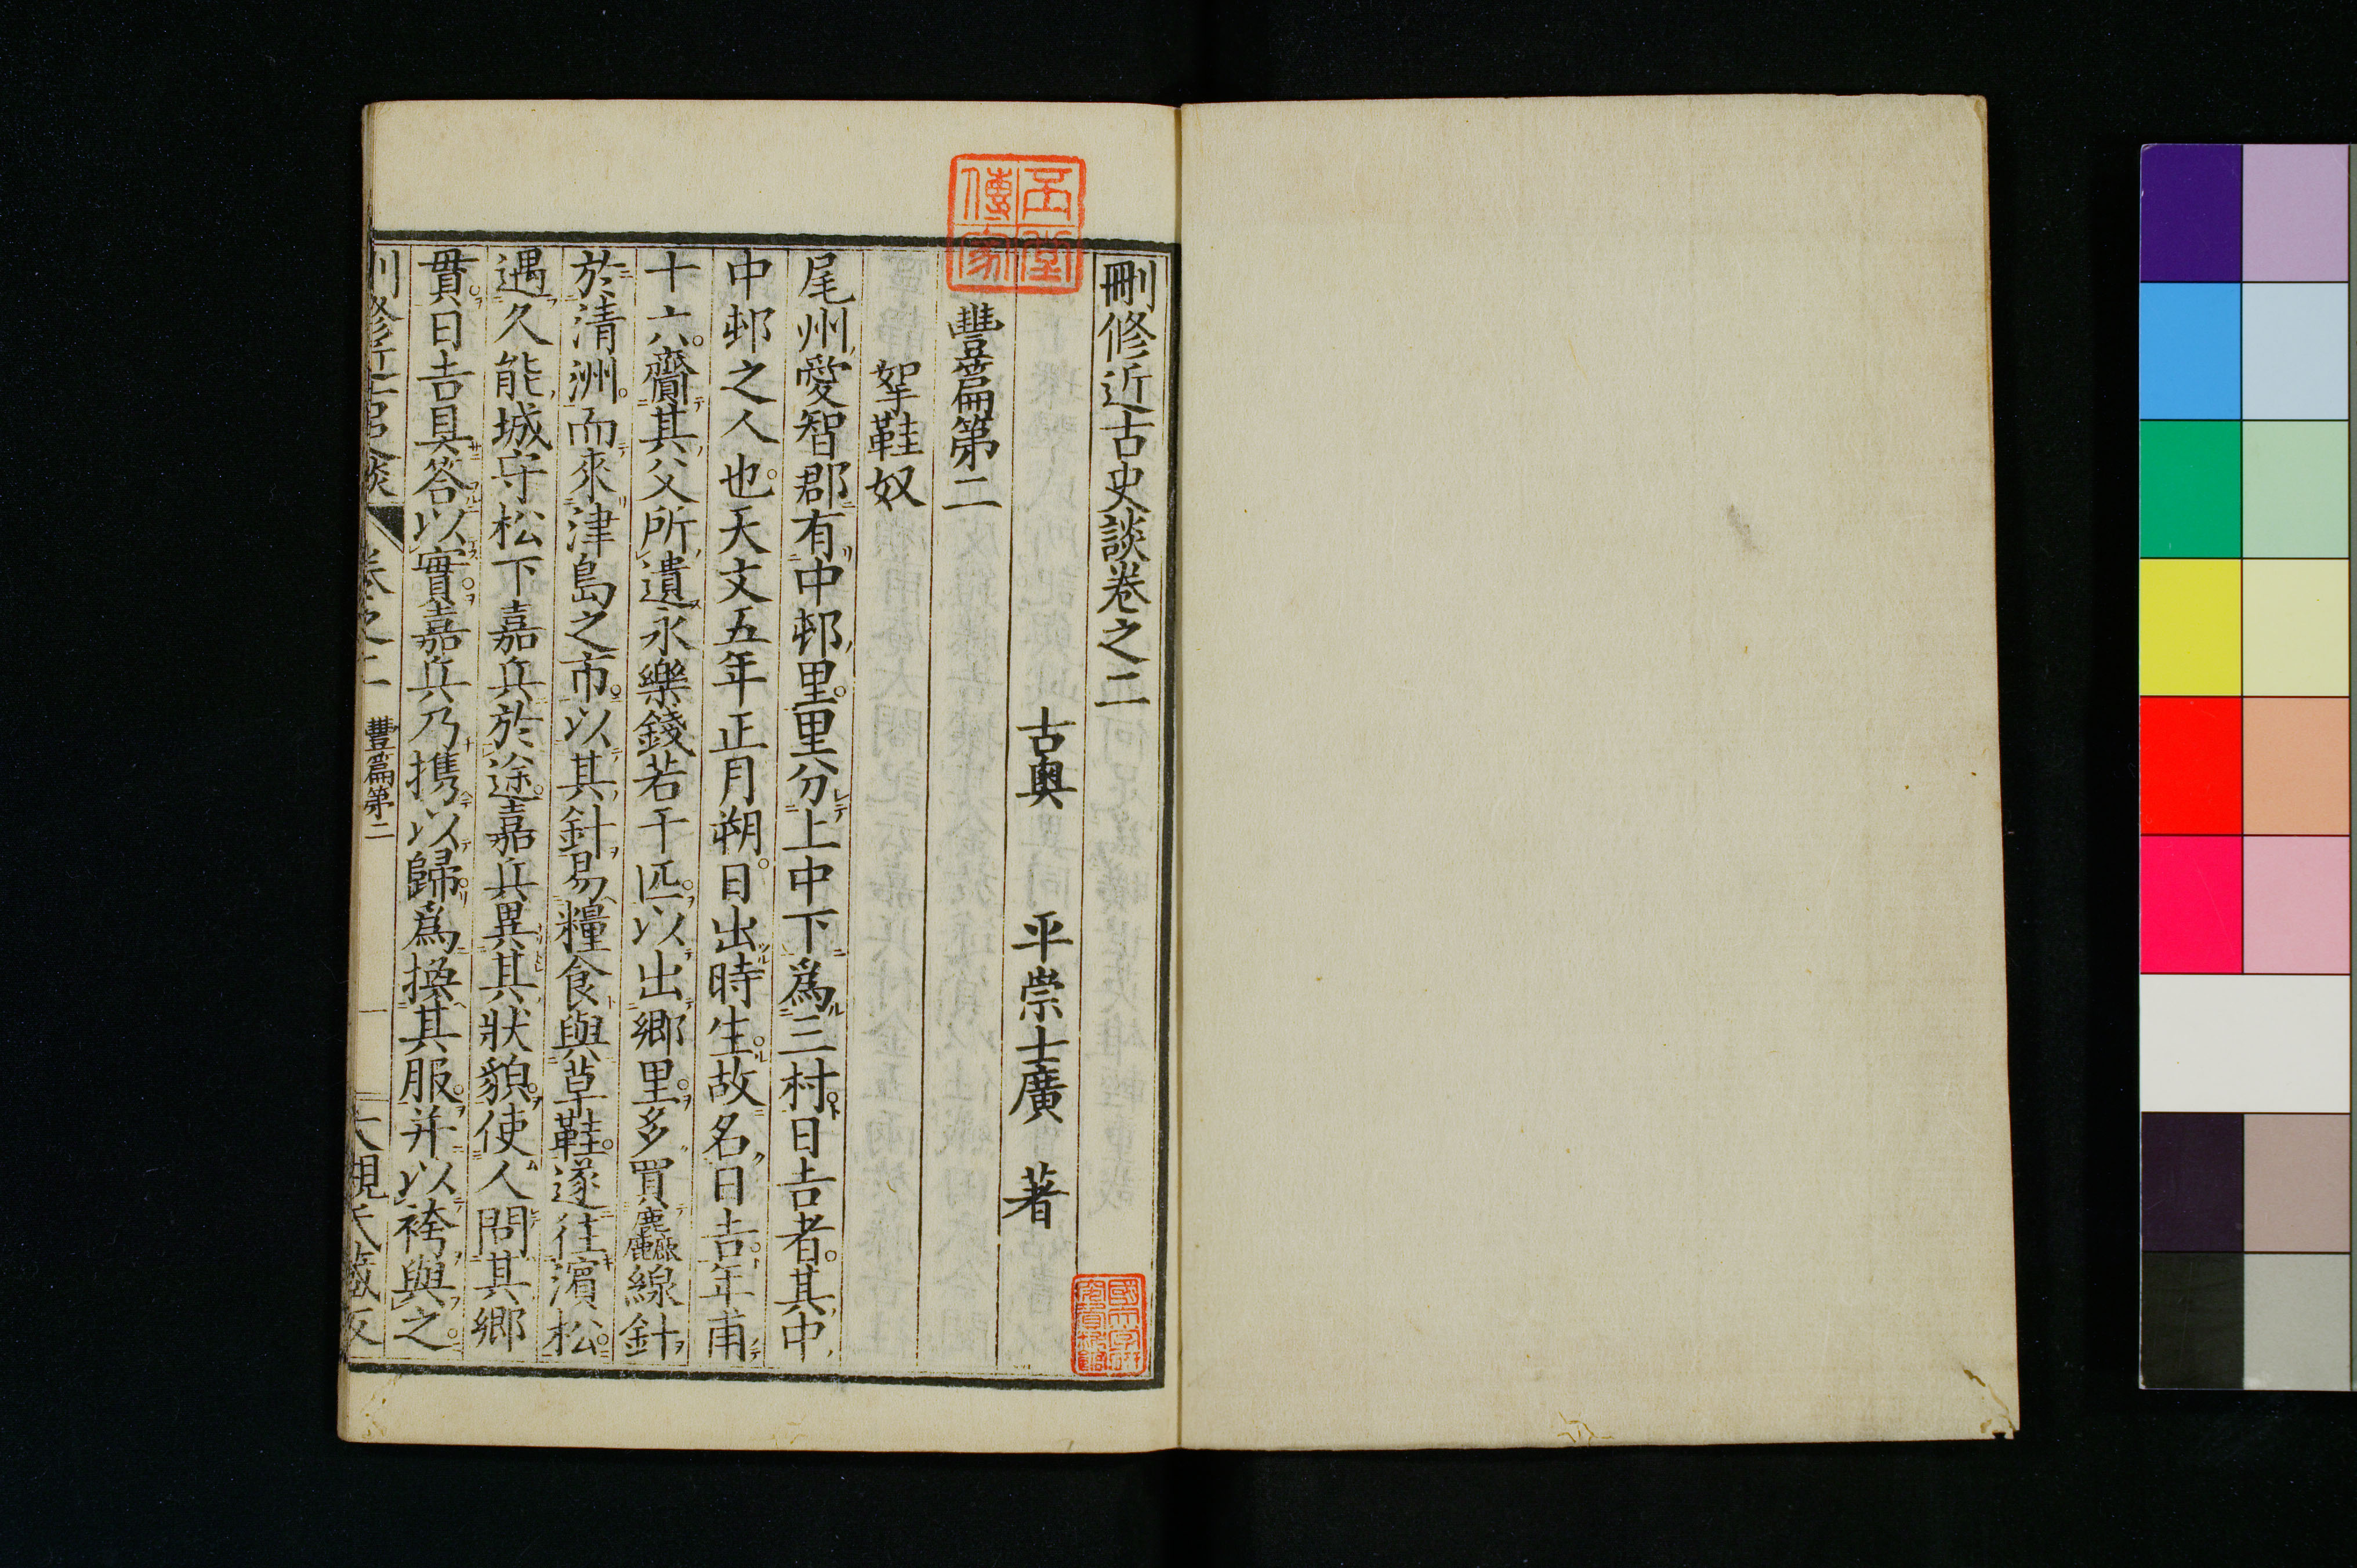 刪修近古史談卷之二
古奧 平崇士廣 著
豐篇第二
挐鞋奴
尾州愛智郡有中邨里里分上中下爲三村日吉者其中
中邨之人也天文五年正月朔日出時生故名日吉年甫
十六齎其父所遺永樂錢若干匹以出鄉里多買麄線針
於清洲而來津島之市以其針易糧食與草鞋遂往濱松
遇久能城守松下嘉兵於途嘉兵異其狀貌使人問其鄉
貫日吉具答以實嘉兵乃携以歸爲換其服并以袴與之
豐篇第二